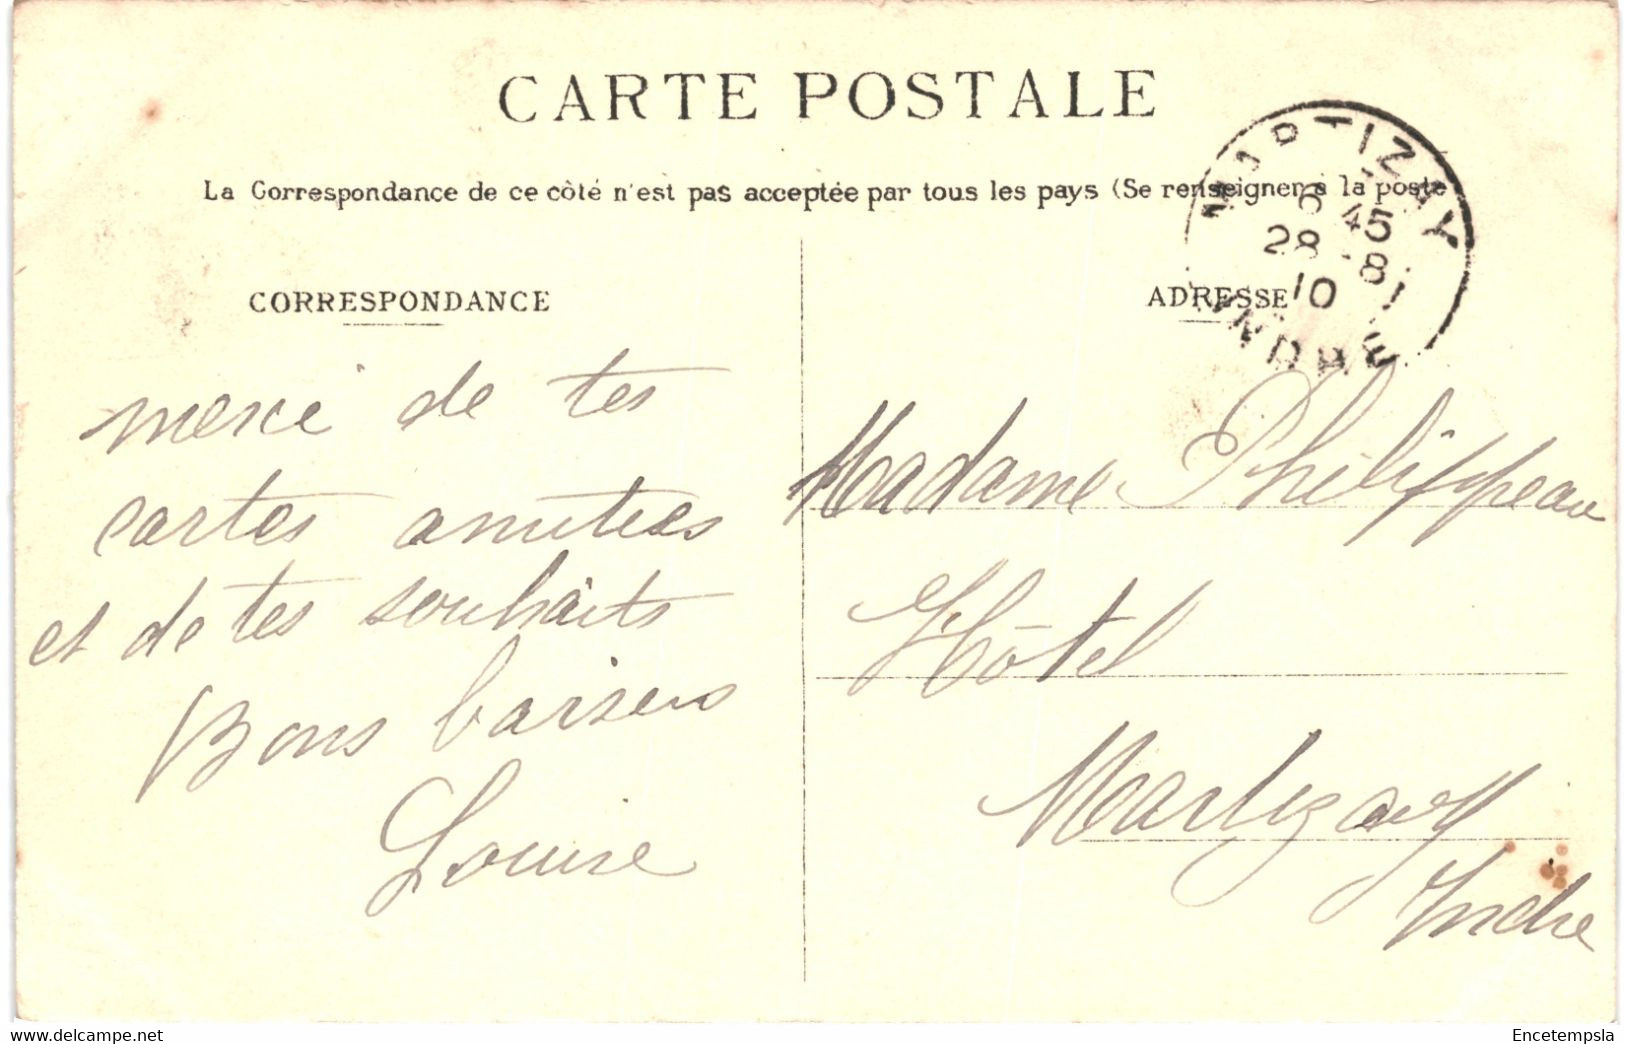 CARTE POSTALE
La Correspondance de ce côté n'est pas acceptée par tous les pays (Se renseigner à la poste
CORRESPONDANCE
ADRESSE
MARTIZAY
6 45
28 8
10
INDRE
merci de tes
cartes amitiées
et de tes souhaits
Bons baisers
Louise
Madame Philippeau
Hôtel
Martizay
Indre
www.delcampe.net
Encetempsla